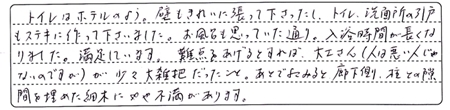 トイレはホテルのよう。壁もきれいに張って下さったし、トイレ、洗面所の引戸
もステキに作って下さいました。お風呂も思っていた通り。入浴時間が長くな
りました。満足しています。難点をあげるとすれば、大工さん(人は悪い人じゃ
ないのですが)が少々大雑把だったこと。あとでみると廊下側、柱との隙
間を埋めた細木にやや不満があります。